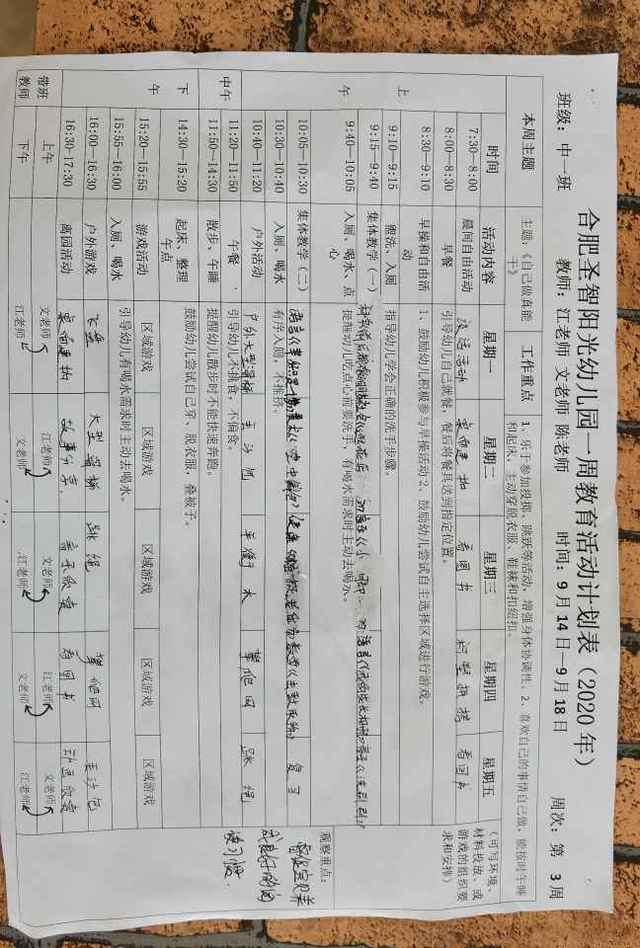 合肥圣智阳光幼儿园一周教育活动计划表（2020 年）
班级：中一班 教师：江老师 文老师 陈老师 时间：9 月 14 日—9 月 18 日 周次：第 3 周
本周主题 主题：《自己做真能干》 工作重点 1、乐于参加投掷、跳跃等活动，增强身体协调性。2、喜欢自己的事情自己做，能按时午睡和起床，主动穿脱衣服、鞋袜和扣纽扣。
时间 活动内容 星期一 星期二 星期三 星期四 星期五 （可写环境、材料投放、或游戏的组织要求和安排）
上午
7:30—8:00 晨间自由活动 桌面建构 看图书 看图书
8:00—8:30 早餐 引导幼儿自己就餐，餐后将餐具送到指定位置。
8:30—9:10 早操和自由活动 1、鼓励幼儿积极参与早操活动 2、鼓励幼儿尝试自主选择区域进行游戏。
9:10—9:15 盥洗、入厕 指导幼儿学会正确的洗手步骤。
9:15—9:40 集体教学（一）
9:40—10:05 入厕、喝水、点心 提醒幼儿吃点心前要洗手，有喝水需求时主动去喝水。
10:05—10:30 集体教学（二） 复习
10:30—10:40 入厕、喝水 有序入厕，不推挤。
10:40—11:20 户外活动 户外大型滑梯 玩沙包 平衡木 攀爬网 跳绳
观察重点：
中午
11:20—11:50 午餐 引导幼儿不挑食，不偏食。
11:50—14:30 散步、午睡 提醒幼儿散步时不能快速奔跑。
下午
14:30—15:20 起床、整理 午点 鼓励幼儿尝试自己穿、脱衣服，叠被子。
15:20—15:55 游戏活动 区域游戏 区域游戏 区域游戏 区域游戏 区域游戏
15:55—16:00 入厕、喝水 引导幼儿有喝水需求时主动去喝水。
16:00—16:30 户外游戏 飞盘 大型滑梯 跳绳 攀爬网 玩沙包
16:30-17:30 离园活动 桌面建构 故事分享 音乐欣赏 看图书 动画欣赏
带班教师 上午 文老师 江老师 文老师 江老师 文老师
下午 江老师 文老师 江老师 文老师 江老师